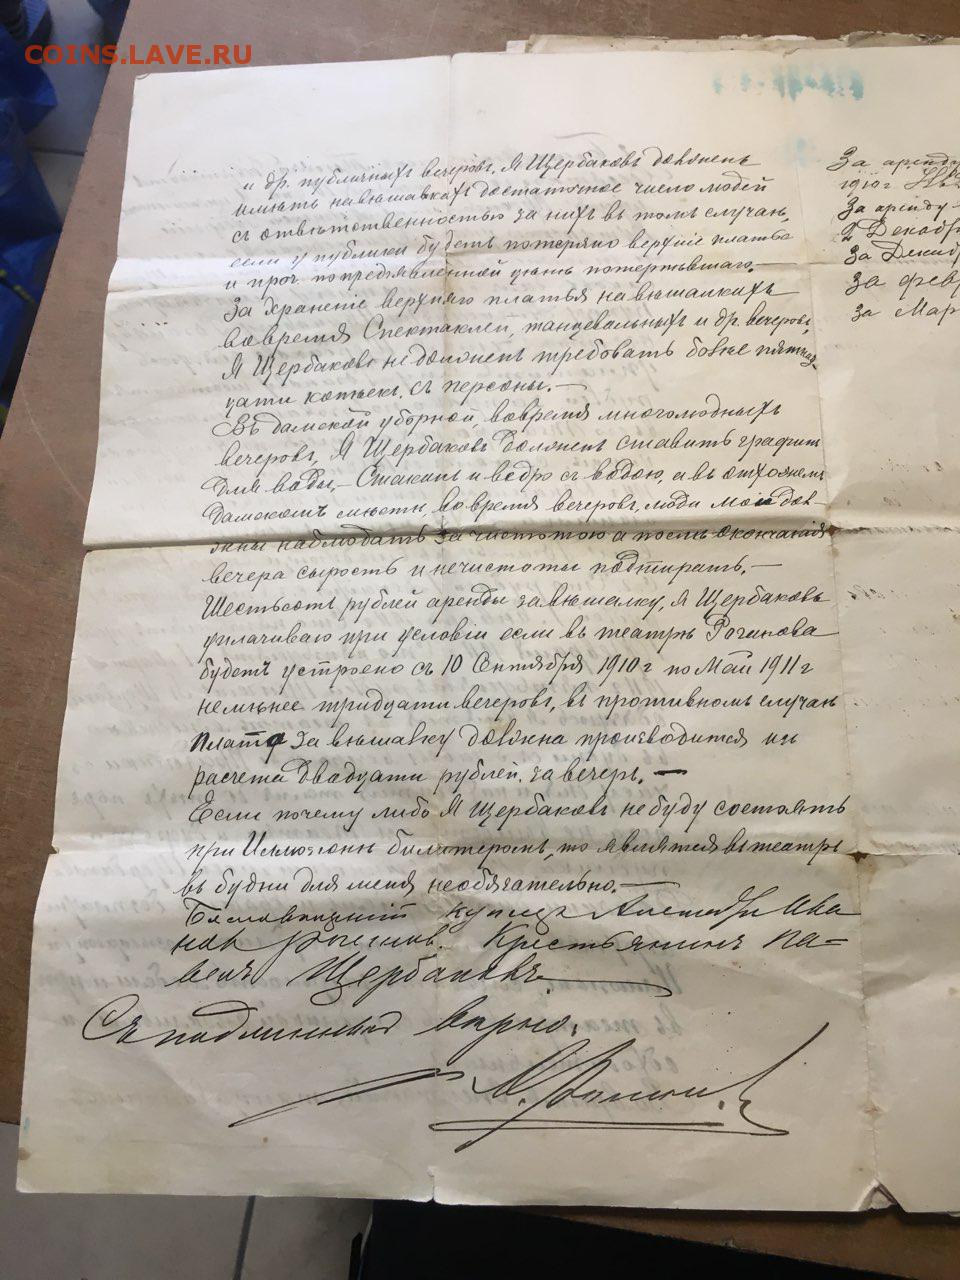 COINS.LAVE.RU
и др. публичныхъ вечеровъ, Я Щербаковъ долженъ
имѣть на вѣшавкахъ достаточное число людей
съ отвѣтственностью за нихъ въ томъ случаѣ,
если у публики будетъ потеряно верхнiе платье
и проч. по предъявленной цѣнѣ потерпѣвшаго.—
За храненiе верхняго платья на вѣшалкахъ
вовремя Спектаклей, танцевальныхъ и др. вечеровъ,
Я Щербаковъ не долженъ требовать болѣе пятнад-
цати копѣекъ съ персоны.—
Въ дамской уборной, вовремя многолюдныхъ
вечеровъ, Я Щербаковъ долженъ ставить графинъ
для воды,— Стаканъ и ведро съ водою, а въ отхожемъ
Дамскомъ мѣстѣ, вовремя вечеровъ, люди мои дол-
жны наблюдать за чистотою а послѣ окончанiя
вечера сырость и нечистоты подтирать.—
Шестьсотъ рублей аренды за вѣшалку, Я Щербаковъ
уплачиваю при условiи если въ театрѣ Рогинова
будетъ устроено съ 10 Сентября 1910 г по Май 1911 г
немѣнее тридцати вечеровъ, въ противномъ случаѣ
плата за вѣшавку должна производится изъ
расчета двадцати рублей за вечеръ.—
Если почему либо Я Щербаковъ не буду состоять
при Иллюзiонѣ билетеромъ, то являтся въ театръ
въ будни для меня необязательно.—
купецъ
Крестьянинъ Па-
велъ Щербаковъ
Съ подлиннымъ вѣрно.
За аренду
1910 г
За аренду
Декабр
За Декаб
За февр
За Мар